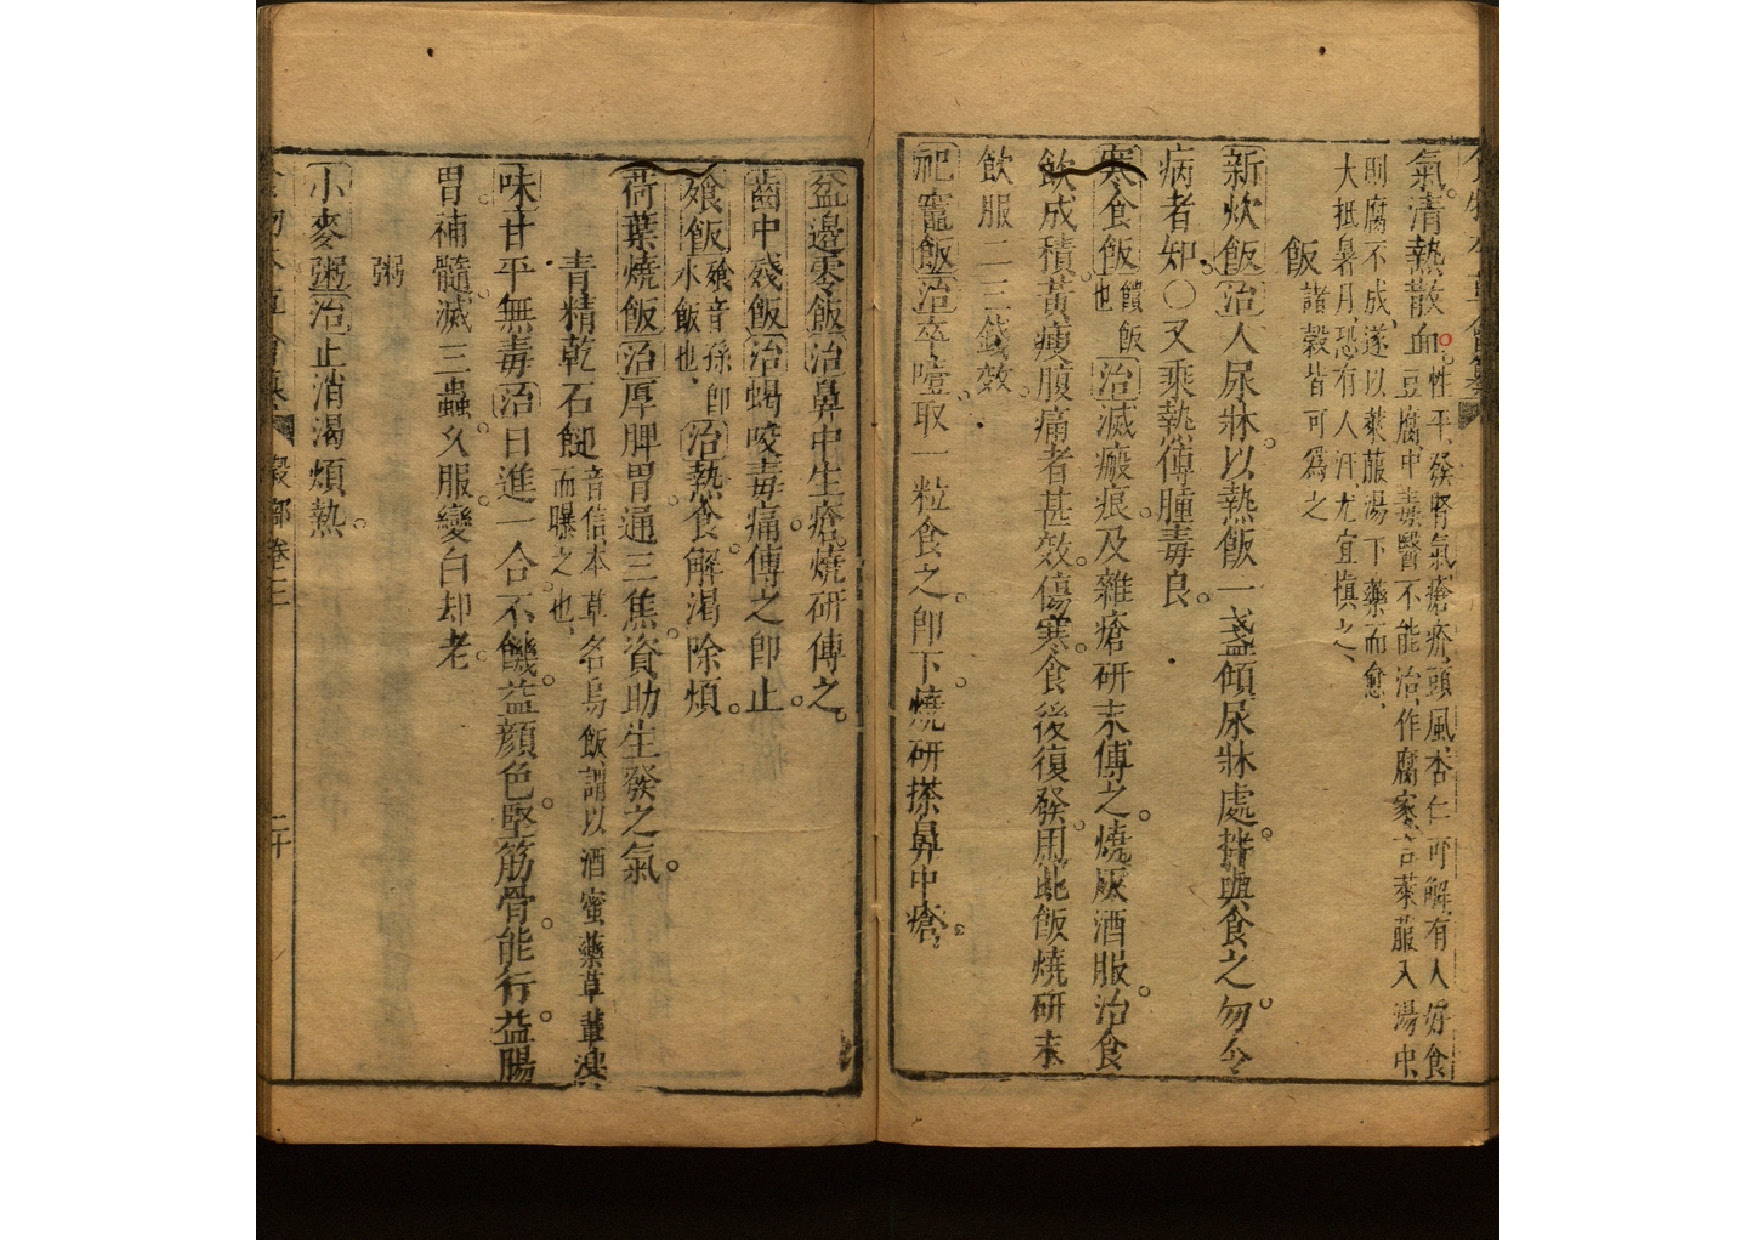 氣。清熱散血。性平。發腎氣瘡疥頭風。杏仁可解。有人好食
豆腐。中毒。醫不能治。作腐家言萊菔入湯中。
則腐不成。遂以萊菔湯下藥而愈。
大抵暑月恐有人汗。尤宜慎之。
飯 諸穀皆可為之
新炊飯 治人尿牀。以熱飯一盞傾尿牀處。拌與食之。勿令
病者知。〇又乘熱傅腫毒良。
寒食飯 饡飯也 治滅瘢痕。及雜瘡研末傅之。燒灰酒服。治食
飲成積。黃瘦腹痛者甚效。傷寒。食後復發。用此飯燒研末
飲服二三錢效。
祀竈飯 治卒噎。取一粒食之。即下。燒研搽鼻中瘡。
盆邊零飯 治鼻中生瘡。燒研傅之。
齒中殘飯 治蝎咬毒痛。傅之即止。
飧飯 飧音孫即水飯也。 治熱食。解渴除煩。
荷葉燒飯 治厚脾胃。通三焦。資助生發之氣。
青精乾石䭀飯 音信。本草名烏飯。謂以酒蜜藥草輩溲而曝之也。
味甘平無毒 治日進一合。不饑。益顏色。堅筋骨。能行。益腸
胃。補髓。滅三蟲。久服。變白却老。
粥
小麥粥 治止消渴煩熱。
穀部卷二
二十